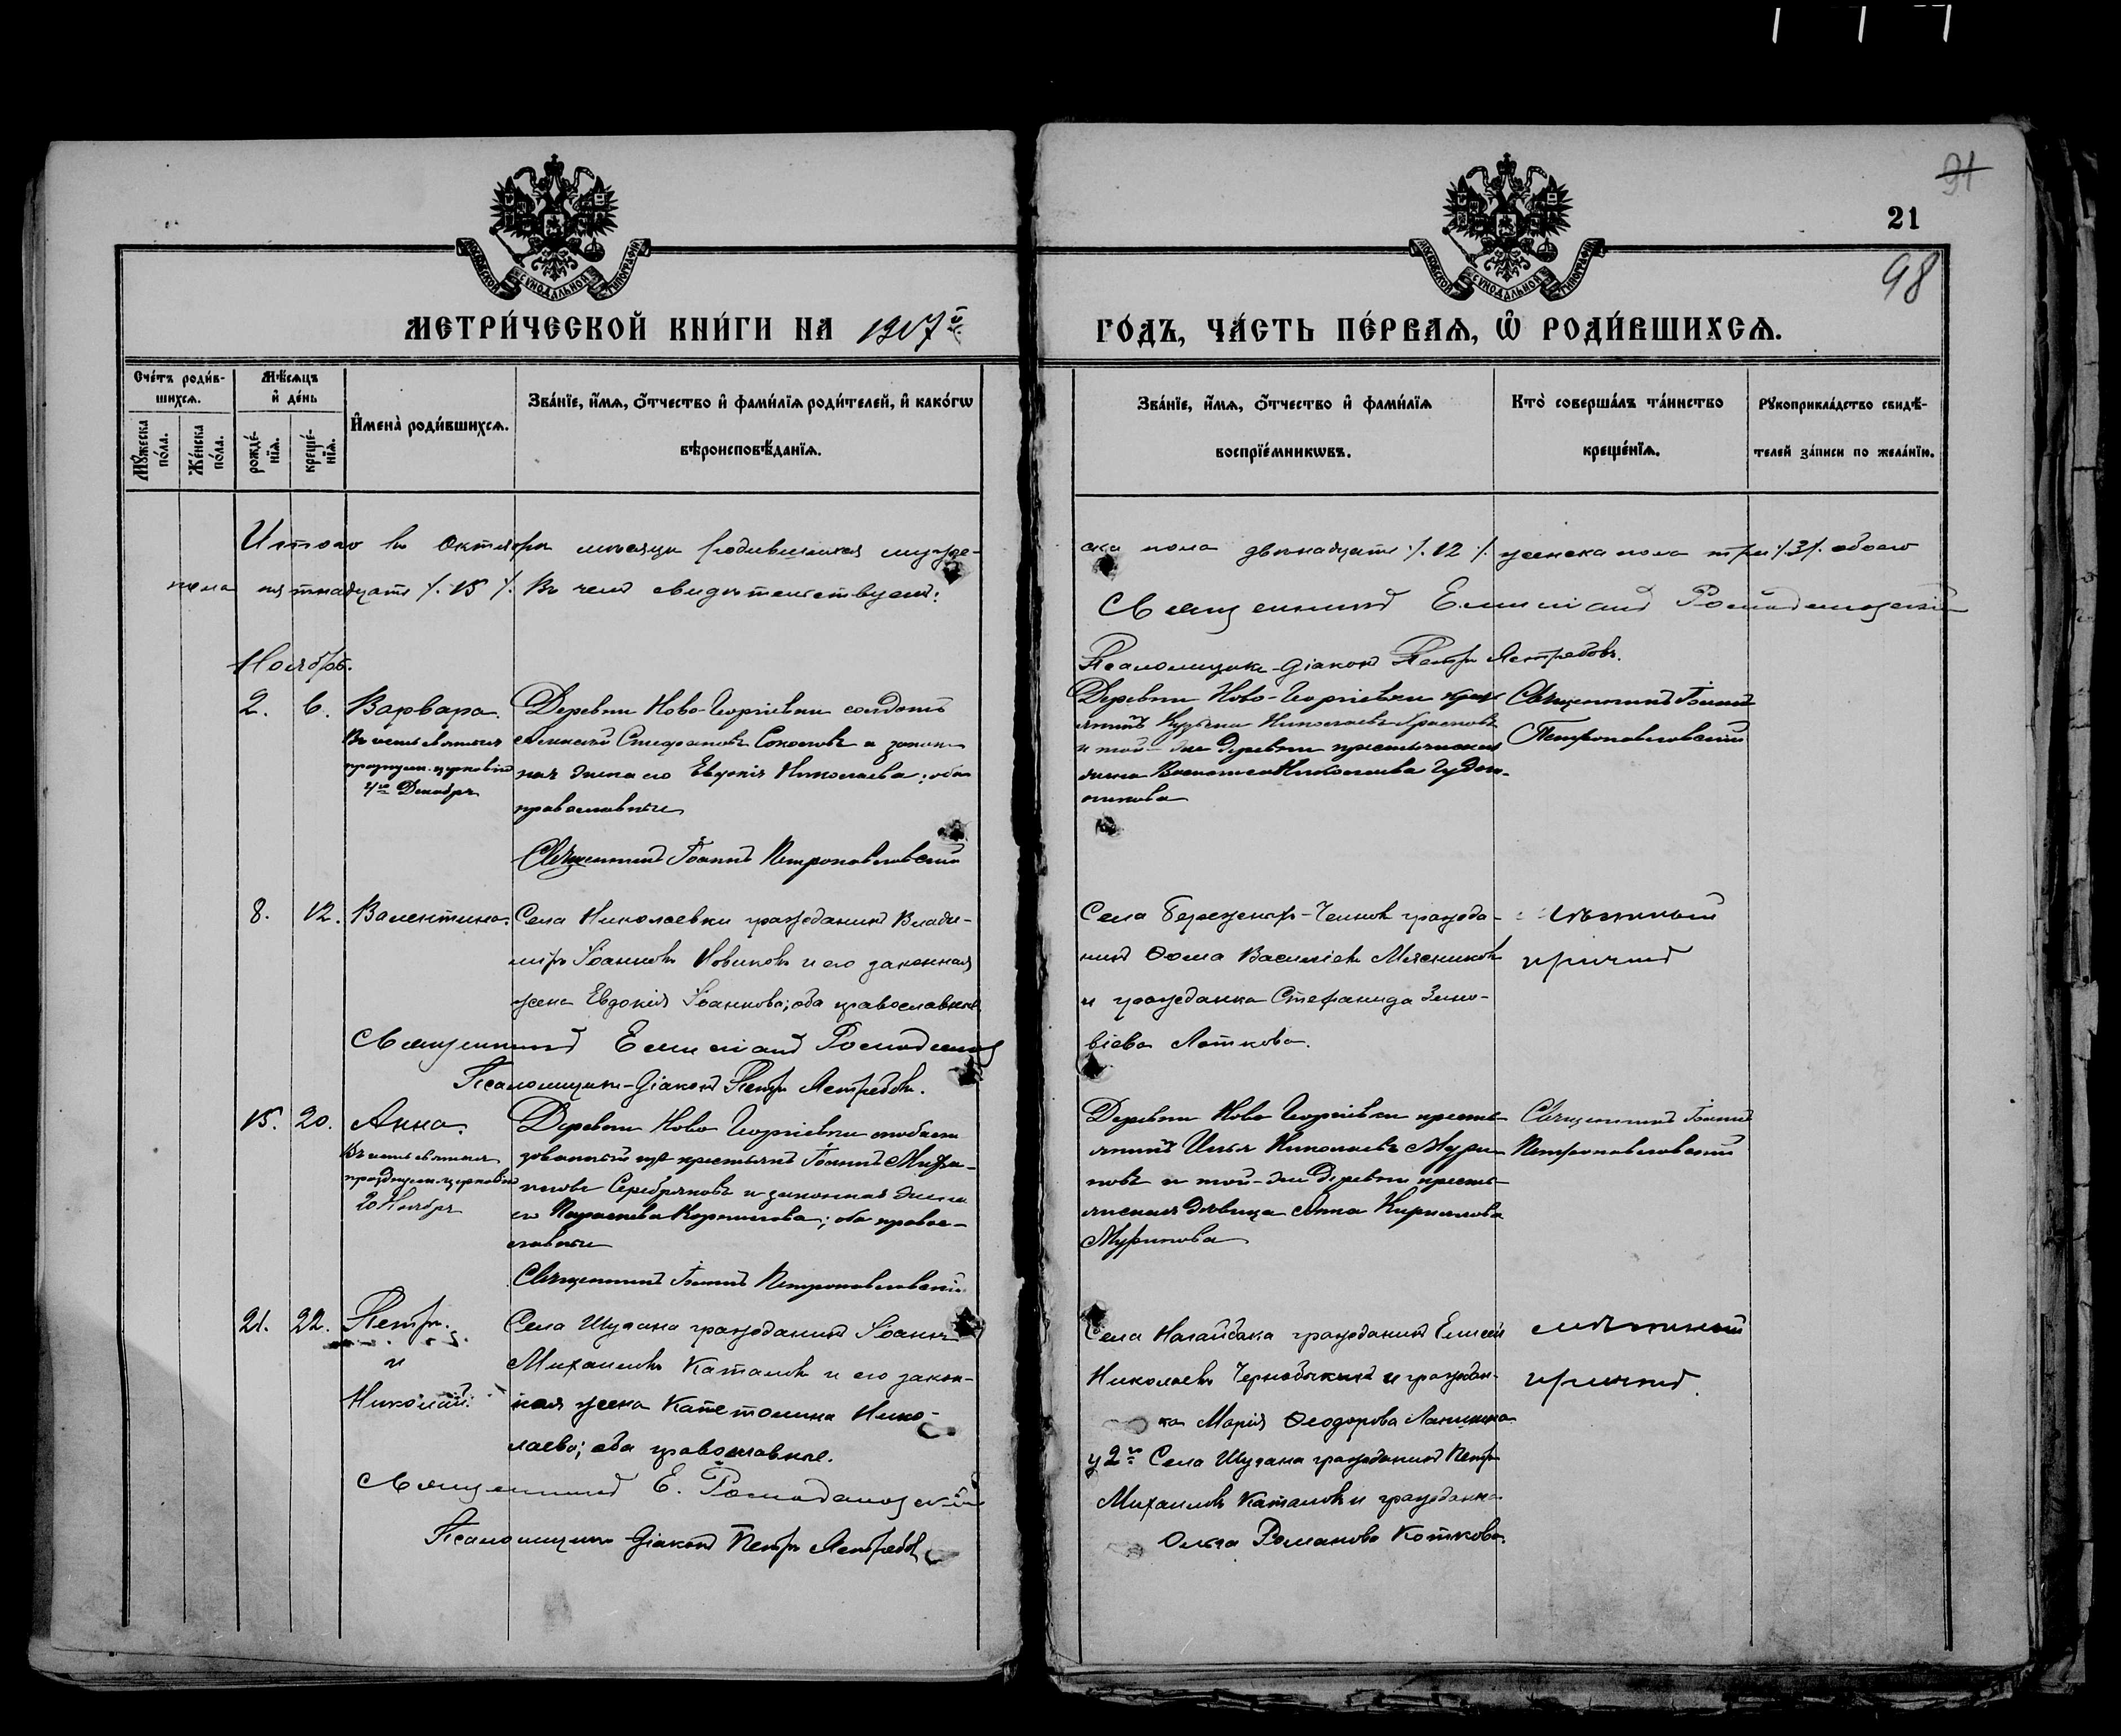 91
21
98
МОСКОВСКОЙ СѴНОДАЛЬНОЙ ТИПОГРАФІИ
МОСКОВСКОЙ СѴНОДАЛЬНОЙ ТИПОГРАФІИ
МЕТРИ́ЧЕСКОЙ КНИ́ГИ НА 1917й
ГО́ДЪ, ЧА́СТЬ ПЕ́РВАѦ, Ѿ РОДИ́ВШИХСѦ.
Сче́тъ роди́в-
шихсѧ.
Мѣ́сѧцъ
и҆ де́нь
И҆мена̀ роди́вшихсѧ.
Зва́нїе, и҆́мѧ, ѻ҆́тчество и҆ фами́лїѧ роди́телей, и҆ како́гѡ
вѣроисповѣ́данїѧ.
Мꙋ́жеска
по́ла.
Же́нска
по́ла.
рожде́-
нїѧ.
креще́-
нїѧ.
Зва́нїе, и҆́мѧ, ѻ҆́тчество и҆ фами́лїѧ
воспрїе́мникѡвъ.
Кто̀ соверша́лъ та́инство
креще́нїѧ.
Рꙋкоприкла́дство свидѣ́-
телей за́писи по жела́нїю.
Итого въ Октябрѣ мѣсяцѣ родившихся муже-
ска пола двѣнадцать /. 12 /. женска пола три /. 3 /. обоего
пола пятнадцать /. 15 /. Въ чемъ свидѣтельствуемъ:
Священникъ Емиліанъ Ромодановскій
Псаломщикъ-діаконъ Петръ Ястребовъ.
Ноябрь.
2. 6. Варвара.
Въ честь святыя
празднуем. церковію
4го Декабря
Деревни Ново-Георгіевки солдатъ
Стефановъ Соколовъ и закон-
ная жена его Евдокія Николаева; оба
православные
Священникъ Іоаннъ Петропавловскій
Деревни Ново-Георгіевки кресть-
янинъ Николаевъ
и той-же деревни крестьянская
жена Николаева
Священникъ Іоаннъ
Петропавловскій
8. 12. Валентина.
Села Николаевки гражданинъ Влади-
міръ Іоанновъ Новиковъ и его законная
жена Евдокія Іоаннова; оба православные
Священникъ Емиліанъ Ромодановск
Псаломщикъ-діаконъ Петръ Ястребовъ.
Села гражда-
нинъ Ѳома Василіевъ Мясниковъ
и гражданка Стефанида Зино-
віева Латкова.
мѣстный
причтъ
15. 20. Анна.
Въ честь святыя
празднуем. церковію
20 Ноября
Деревни Ново Георгіевки мобили-
зованный изъ крестьянъ Іоаннъ
Серебряковъ и законная жена
его Параскева Корнилова; оба право-
славные
Священникъ Іоаннъ Петропавловскій
Деревни Ново Георгіевки кресть-
янинъ Илья Николаевъ Мури-
новъ и той-же деревни кресть-
янская дѣвица Анна Кириллова
Муринова
Священникъ Іоаннъ
Петропавловскій
21. 22. Петръ.
и
Николай.
Села Шугана гражданинъ Іоаннъ
Михаиловъ Каталовъ и его закон-
ная жена Капетолина Нико-
лаева; оба православные.
Священникъ Е. Ромодановскій
Псаломщикъ Діаконъ Петръ Ястребовъ
Села Нагайбака гражданинъ Елисей
Николаевъ и граждан-
ка Марія Ѳеодорова
у 2го Села Шугана гражданинъ Петръ
Михаиловъ Каталовъ и гражданка
Ольга Романова Коткова.
мѣстный
причтъ.